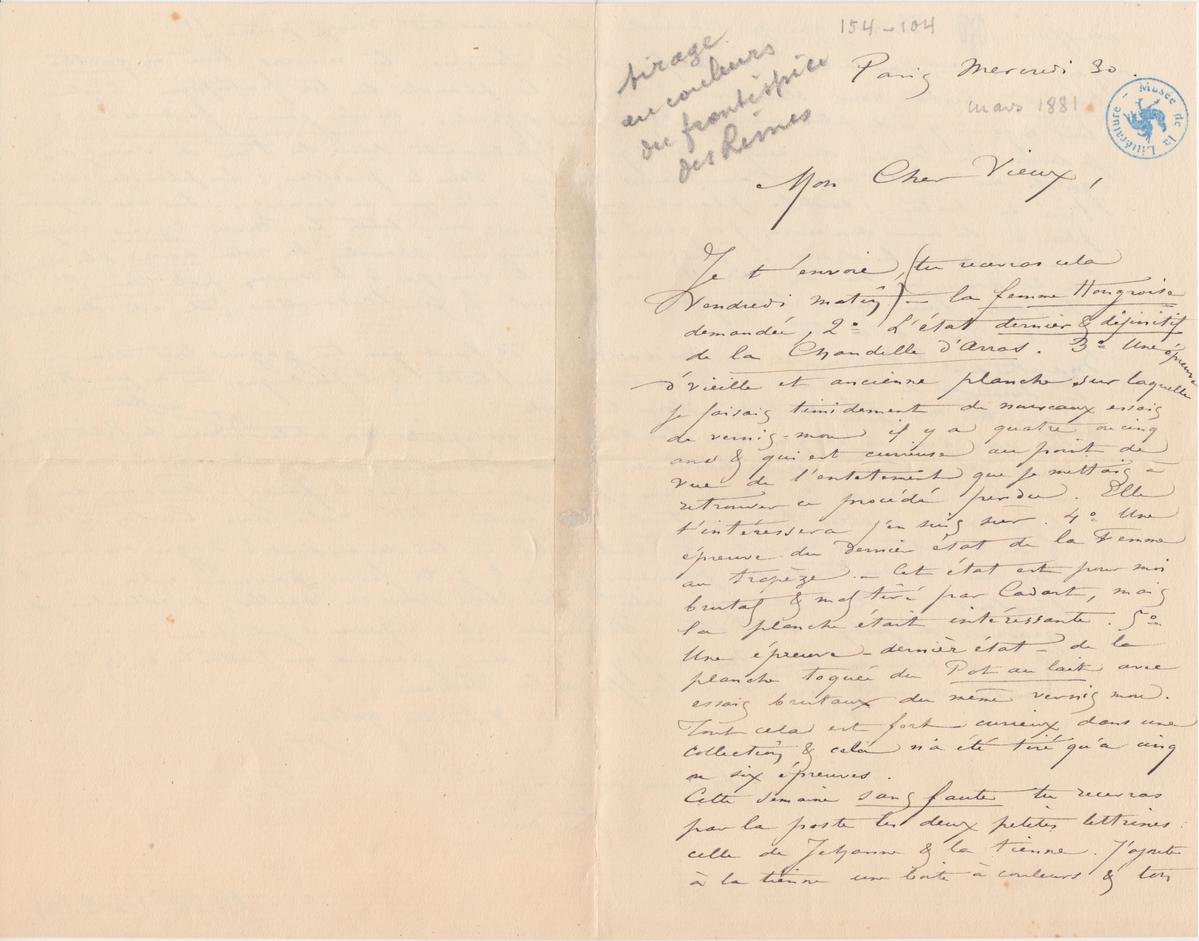 154-104
tirage
en couleurs
du frontispice
des Rimes
Paris Mercredi 30.
mars 1881
Musée de la Littérature
Mon Cher Vieux,
Je t'envoie, (tu recevras cela
Vendredi matin) - la femme Hongroise
demandée, 2º L'état dernier & définitif
de la Chandelle d'Arras. 3º Une épreuve
d'vieille et ancienne planche sur laquelle
je faisais timidement de nouveaux essais
de vernis-mou il y a quatre ou cinq
ans & qui est curieuse au point de
vue de l'entêtement que je mettais à
retrouver ce procédé perdu. Elle
t'intéressera j'en suis sûr. 4º Une
épreuve du Dernier état de la Femme
au trapèze. - Cet état est pour moi
brutal & mal tiré par Cadart, mais
la planche était intéressante. 5º
Une épreuve - dernier état - de la
planche toquée du Pot au lait avec
essais brutaux du même vernis mou.
Tout cela est fort curieux dans une
Collection & cela n'a été tiré qu'à cinq
ou six épreuves.
Cette semaine sans faute tu recevras
par la poste les deux petites lettrines:
celle de Jehanne & la tienne. J'ajoute
à la tienne une boîte à couleurs & ton